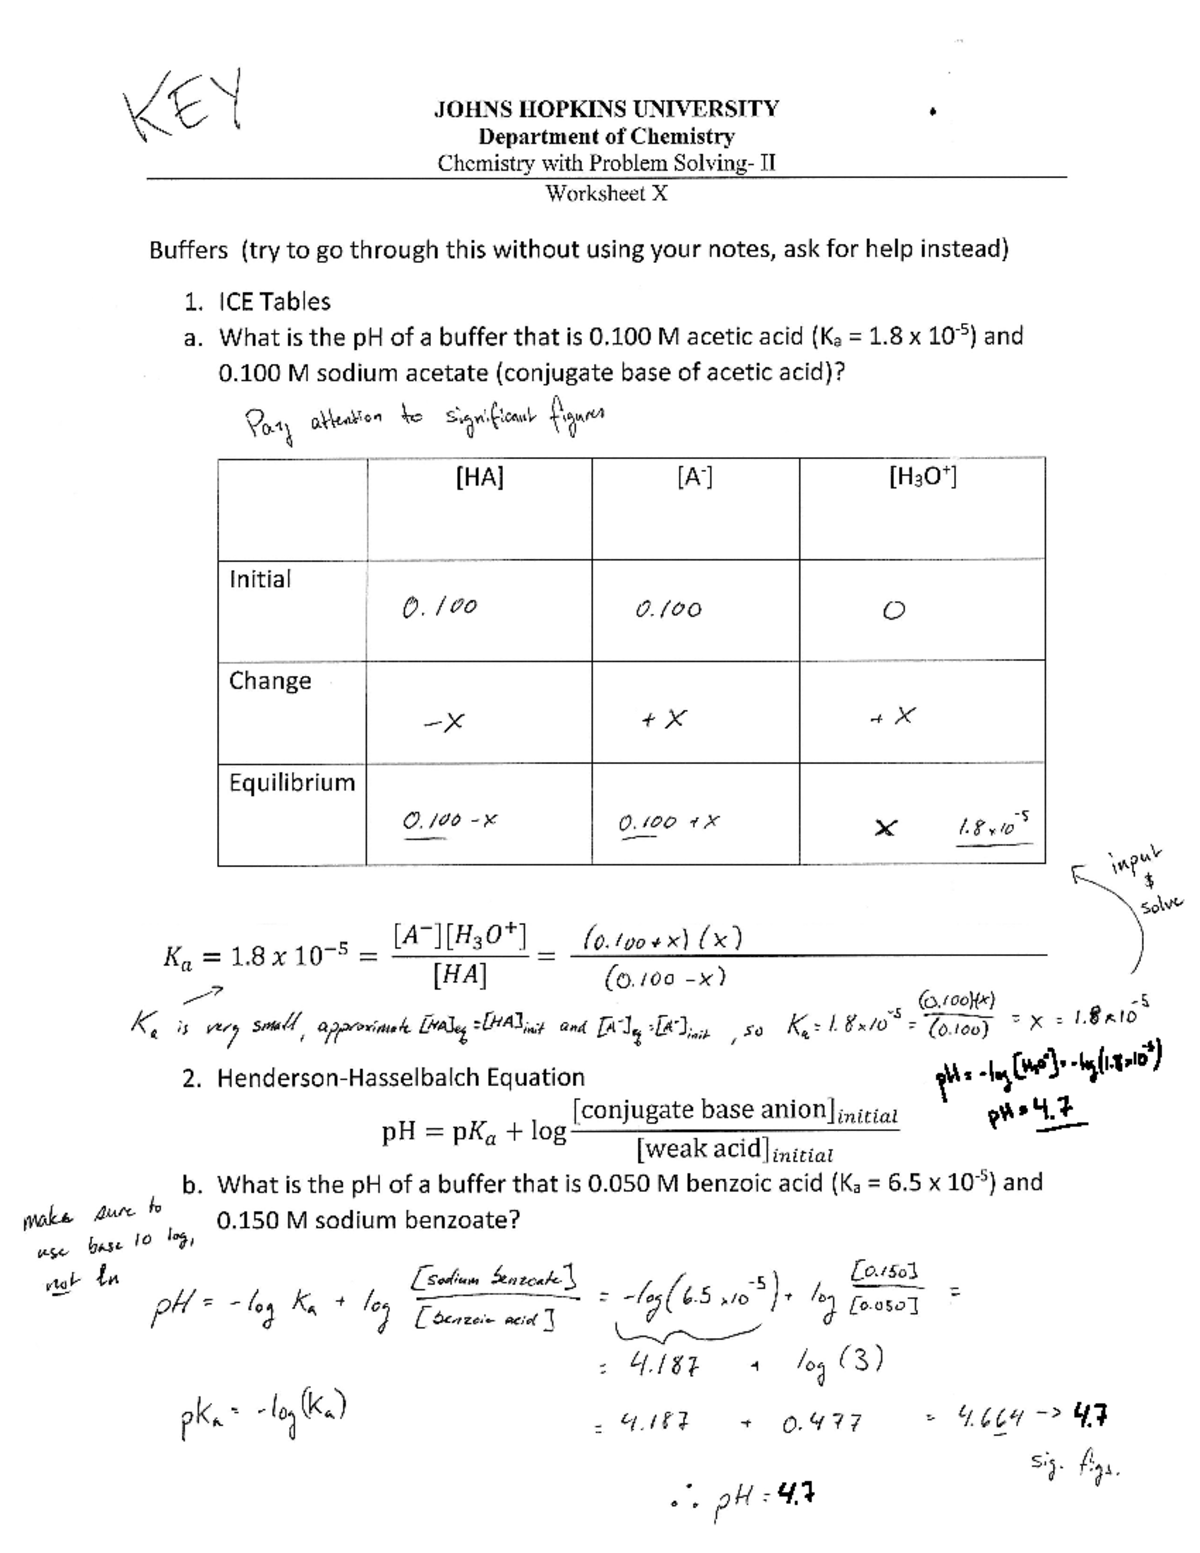 KEY
JOHNS HOPKINS UNIVERSITY
Department of Chemistry
Chemistry with Problem Solving- II
Worksheet X
Buffers (try to go through this without using your notes, ask for help instead)
1. ICE Tables
a. What is the pH of a buffer that is 0.100 M acetic acid (Kₐ = 1.8 x 10⁻⁵) and
0.100 M sodium acetate (conjugate base of acetic acid)?
Pay attention to significant figures
[HA] [A⁻] [H₃O⁺]
Initial 0.100 0.100 0
Change -x + x + x
Equilibrium 0.100 -x 0.100 + x x 1.8 x 10⁻⁵
input & solve
Kₐ = 1.8 x 10⁻⁵ = [A⁻][H₃O⁺] / [HA] = (0.100 + x) (x) / (0.100 - x)
Kₐ is very small, approximate [HA]eq = [HA]init and [A⁻]eq = [A⁻]init, so Kₐ = 1.8 x 10⁻⁵ = (0.100)(x) / (0.100) = x = 1.8 x 10⁻⁵
pH = -log [H₃O⁺] = -log(1.8 x 10⁻⁵)
pH = 4.7
2. Henderson-Hasselbalch Equation
pH = pKₐ + log [conjugate base anion]initial / [weak acid]initial
b. What is the pH of a buffer that is 0.050 M benzoic acid (Kₐ = 6.5 x 10⁻⁵) and
0.150 M sodium benzoate?
make sure to
use base 10 log,
not ln
pH = -log Kₐ + log [sodium benzoate] / [benzoic acid] = -log(6.5 x 10⁻⁵) + log [0.150] / [0.050] =
= 4.187 + log (3)
pKₐ = -log(Kₐ)
= 4.187 + 0.477 = 4.664 -> 4.7
sig. figs.
∴ pH = 4.7